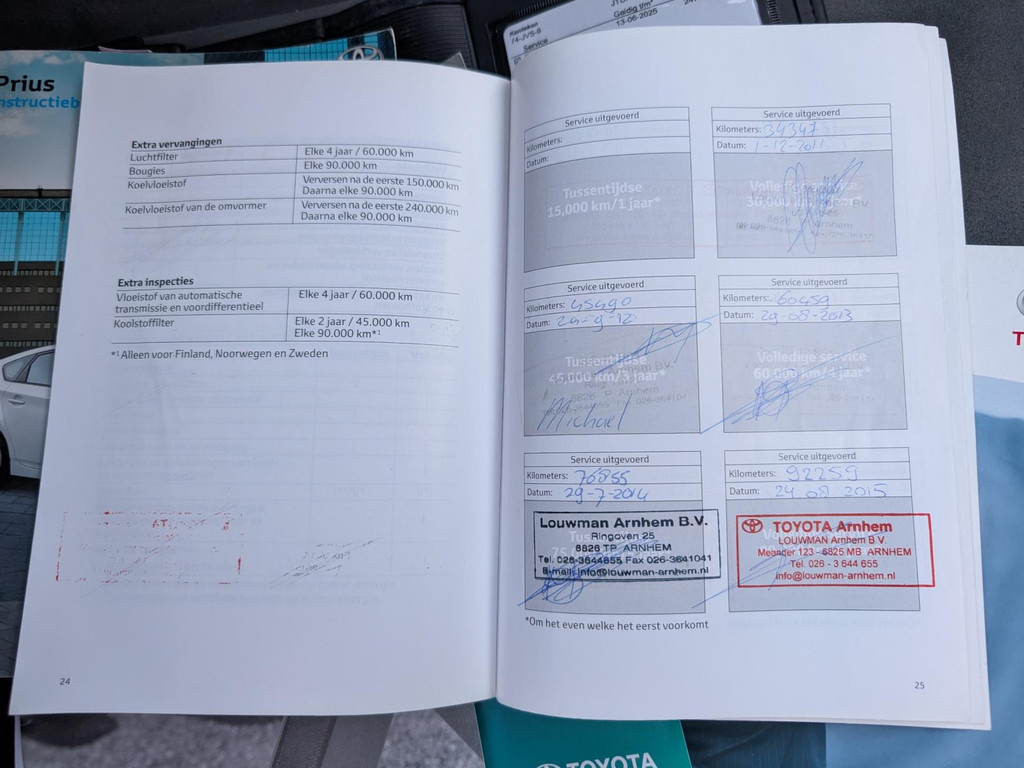 Prius
nstructieb
Kenteken
74-JVS-8
Service
Geldig t/m*
13-06-2025
Extra vervangingen
Luchtfilter Elke 4 jaar / 60.000 km
Bougies Elke 90.000 km
Koelvloeistof Verversen na de eerste 150.000 km
Daarna elke 90.000 km
Koelvloeistof van de omvormer Verversen na de eerste 240.000 km
Daarna elke 90.000 km
Extra inspecties
Vloeistof van automatische
transmissie en voordifferentieel Elke 4 jaar / 60.000 km
Koolstoffilter Elke 2 jaar / 45.000 km
Elke 90.000 km*¹
*¹ Alleen voor Finland, Noorwegen en Zweden
24
Service uitgevoerd
Kilometers:
Datum:
Tussentijdse
15,000 km/1 jaar*
Service uitgevoerd
Kilometers: 34347
Datum: 1-12-2011
Volledige service
Service uitgevoerd
Kilometers: 45490
Datum: 24-9-12
Tussentijdse
45,000 km/3 jaar*
6826 TP Arnhem
Michael
Service uitgevoerd
Kilometers: 60459
Datum: 29-08-2013
Volledige service
60.000 km/4 jaar*
Service uitgevoerd
Kilometers: 76855
Datum: 29-7-2014
Louwman Arnhem B.V.
Ringoven 25
6826 TP ARNHEM
Tel. 026-3644655 Fax 026-3641041
E-mail: info@louwman-arnhem.nl
Service uitgevoerd
Kilometers: 92259
Datum: 24 08 2015
TOYOTA Arnhem
LOUWMAN Arnhem B.V.
Meander 123 - 6825 MB ARNHEM
Tel. 026 - 3 644 655
info@louwman-arnhem.nl
*Om het even welke het eerst voorkomt
25
TOYOTA